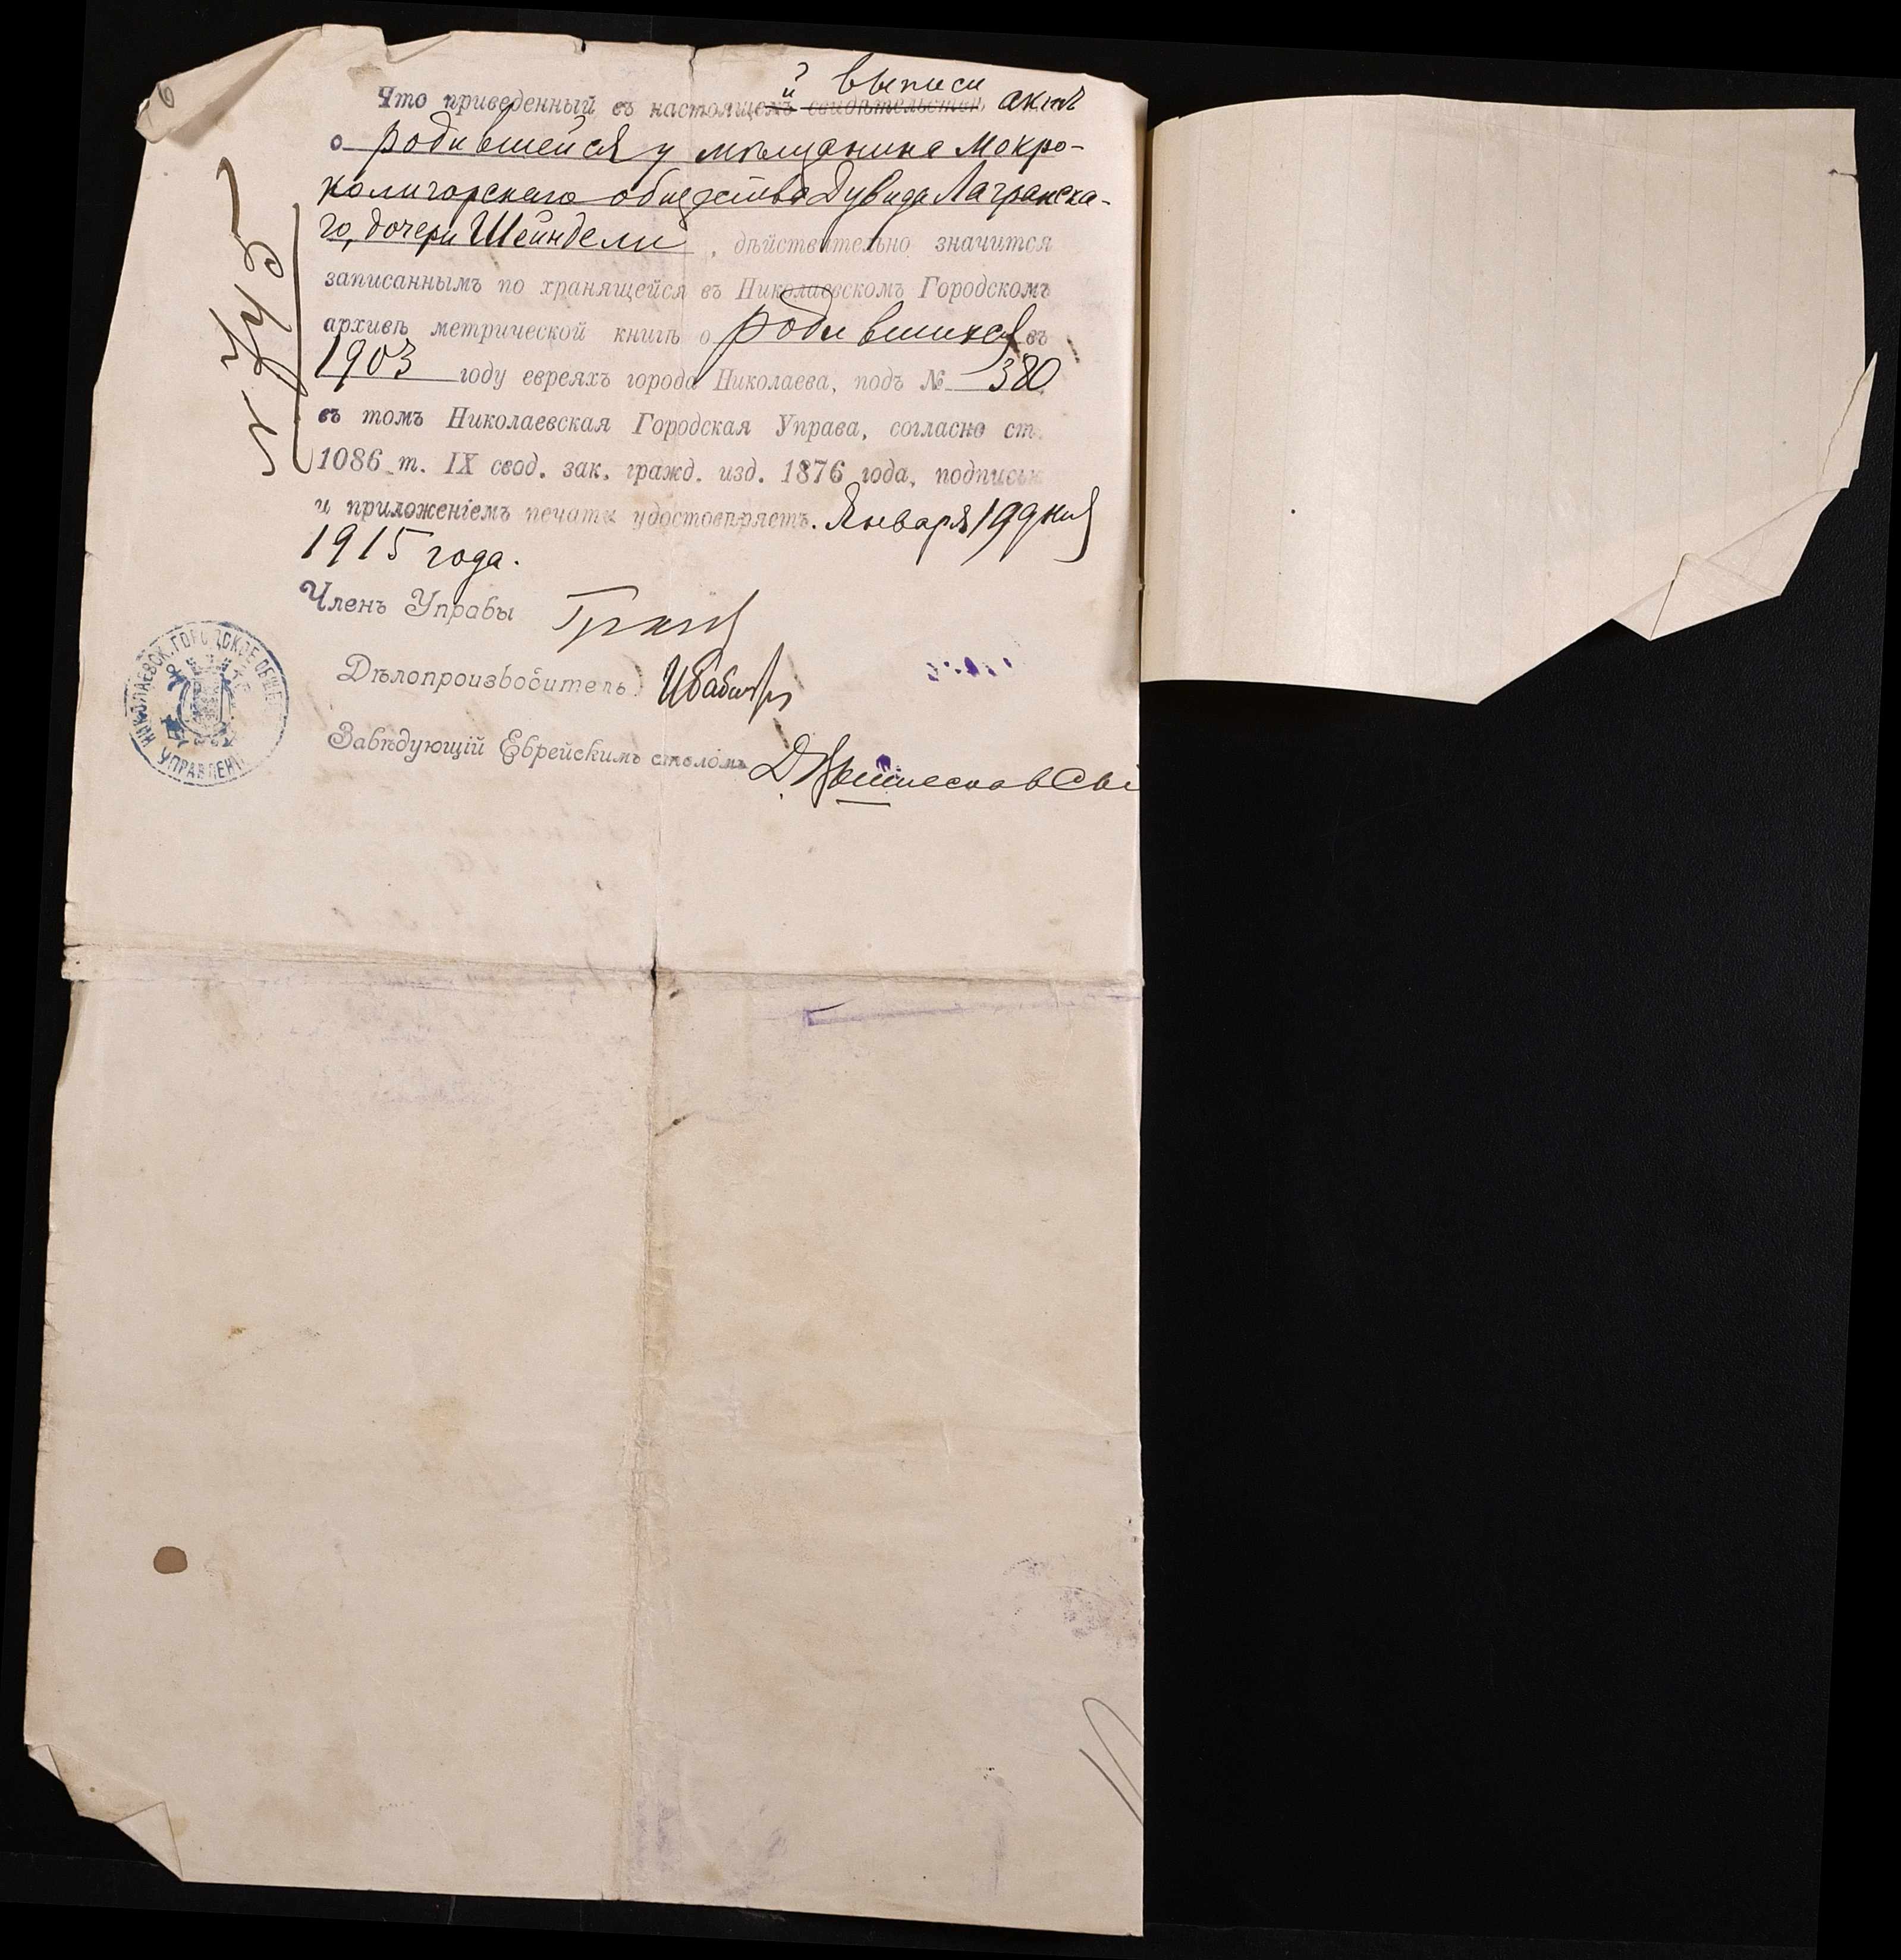 й выписи
Что приведенный въ настоящемъ свидѣтельствѣ актъ
о родившейся у мѣщанина Мокро-
калигорскаго общества Дувида Лагранска-
го, дочери Шейндели, дѣйствительно значится
записаннымъ по хранящейся въ Николаевскомъ Городскомъ
архивѣ метрической книгѣ о родившихся въ
1903 году евреяхъ города Николаева, подъ № 380
въ томъ Николаевская Городская Управа, согласно ст.
1086 т. IX свод. зак. гражд. изд. 1876 года, подписью
и приложеніемъ печати удостовѣряетъ. Января 19 дня
1915 года.
Членъ Управы
Дѣлопроизводитель
Завѣдующій Еврейскимъ столомъ
НИКОЛАЕВСК. ГОРОДСКОЕ ОБЩЕ
УПРАВЛЕНІ